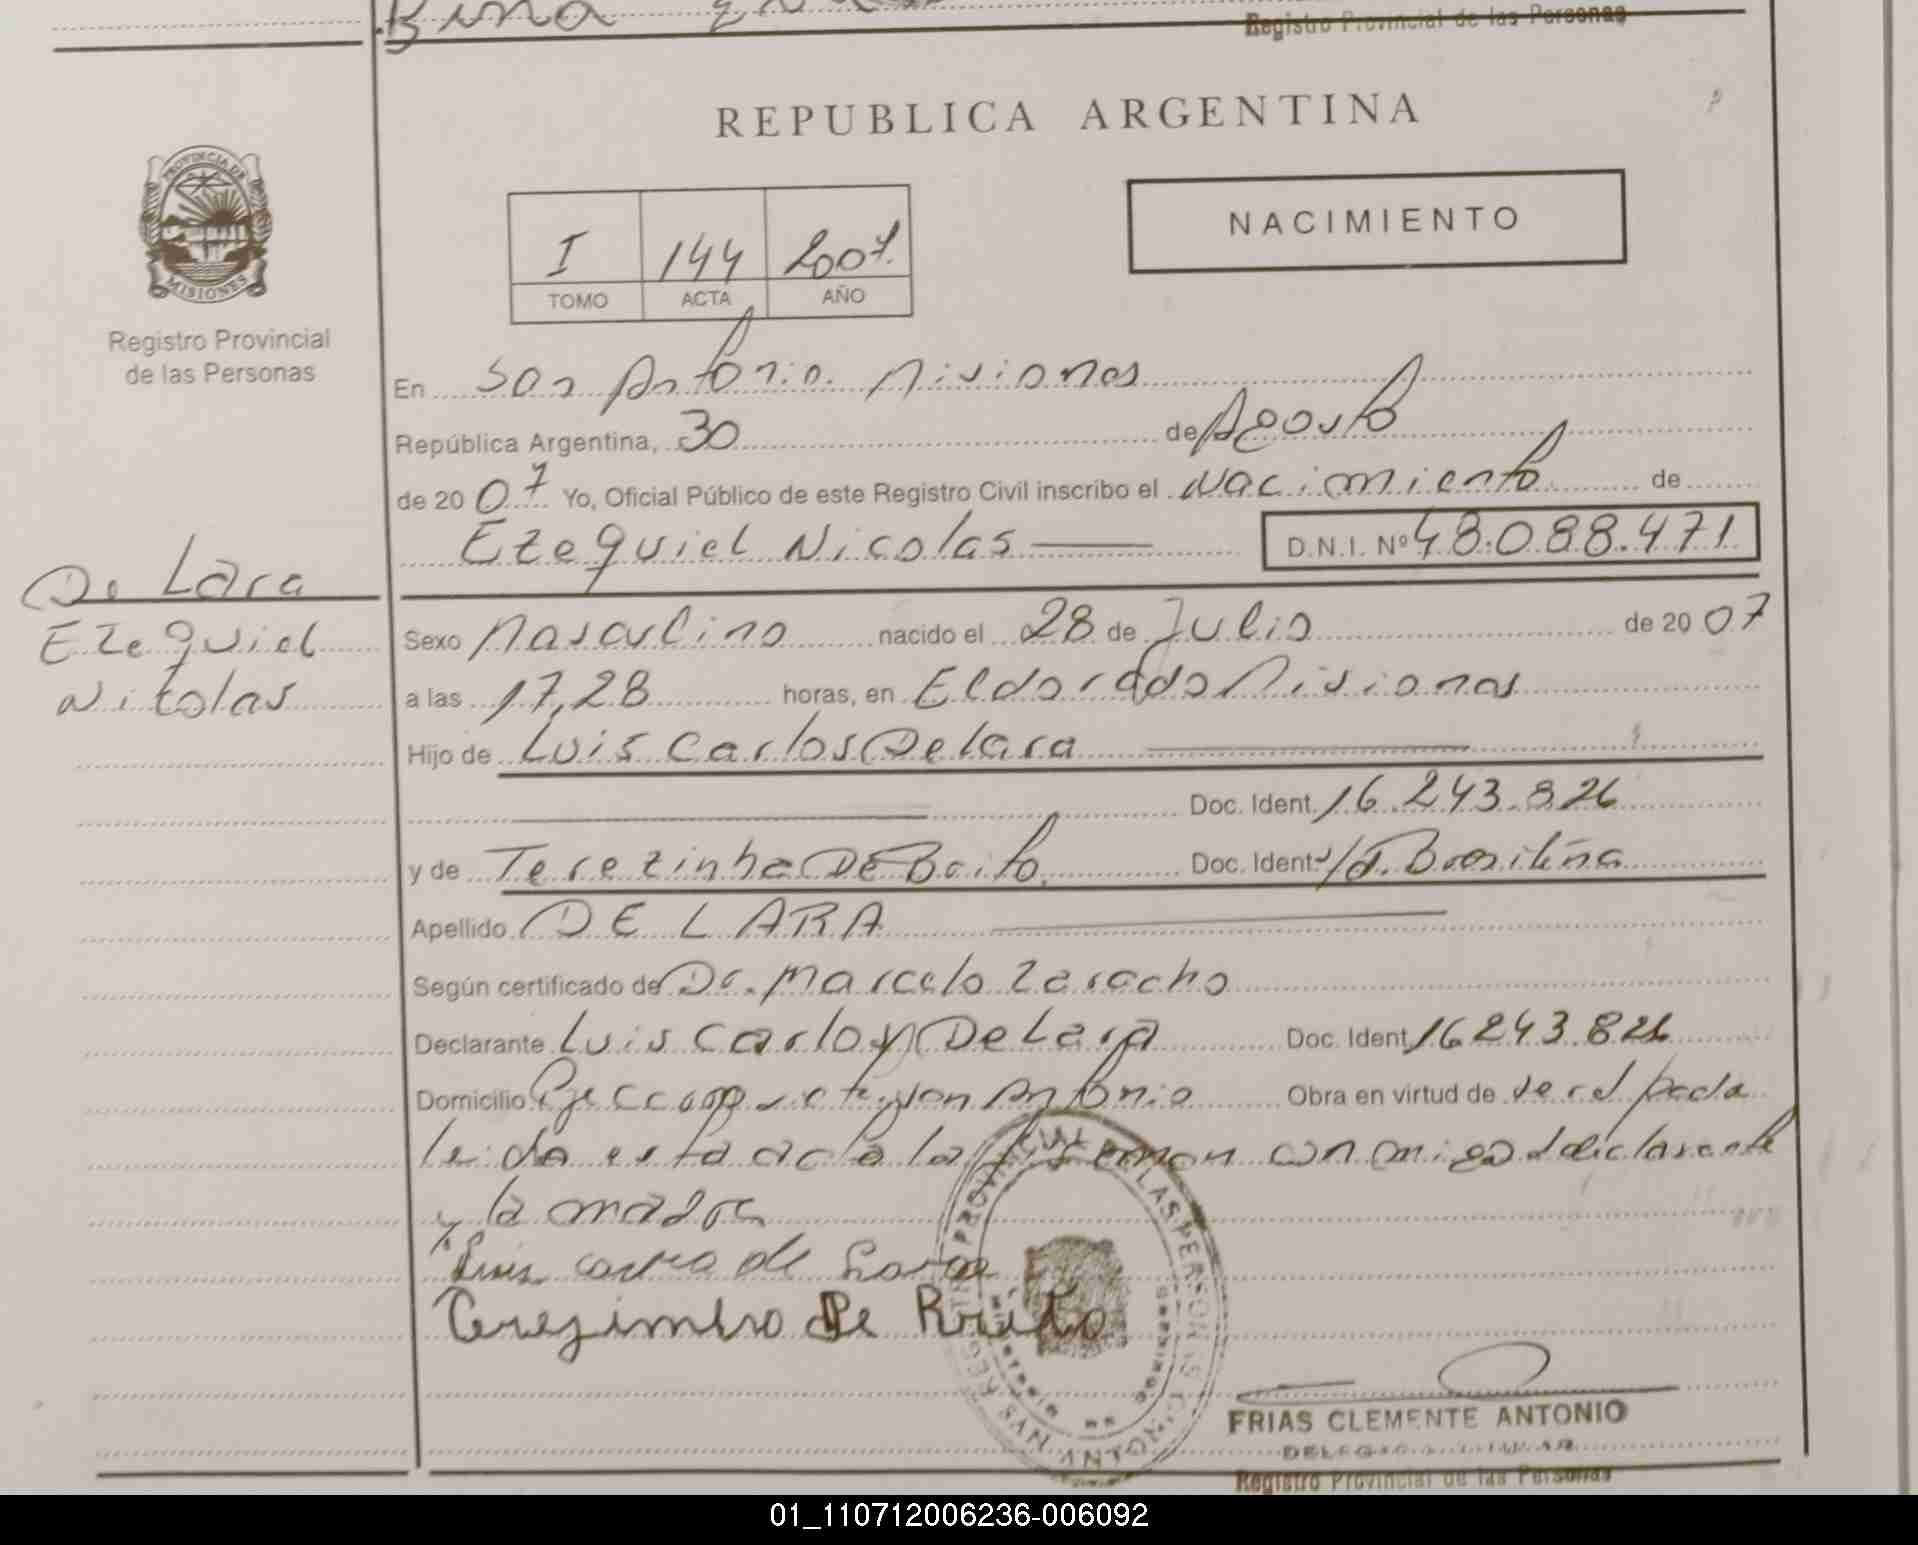 Registro Provincial de las Personas
REPUBLICA ARGENTINA
PROVINCIA DE
MISIONES
Registro Provincial
de las Personas
NACIMIENTO
I 144 2007
TOMO ACTA AÑO
En San Antonio Misiones
República Argentina, 30 de Agosto
de 20 07 Yo, Oficial Público de este Registro Civil inscribo el Nacimiento de
Ezequiel Nicolas D.N.I. Nº 48.088.471
De Lara
Ezequiel
Nicolas
Sexo Masculino nacido el 28 de Julio de 20 07
a las 17,28 horas, en Eldorado Misiones
Hijo de Luis Carlos De Lara
Doc. Ident. 16.243.826
y de Terezinha De Brito Doc. Ident. Brasileña
Apellido DE LARA
Según certificado de Dr. Marcelo Zaracho
Declarante Luis Carlos De Lara Doc. Ident. 16243.826
Domicilio San Antonio Obra en virtud de
leida esta acta la firman conmigo el declarante
y la madre
de Lara
De Brito
SAN ANTONIO
FRIAS CLEMENTE ANTONIO
Registro Provincial de las Personas
01_110712006236-006092